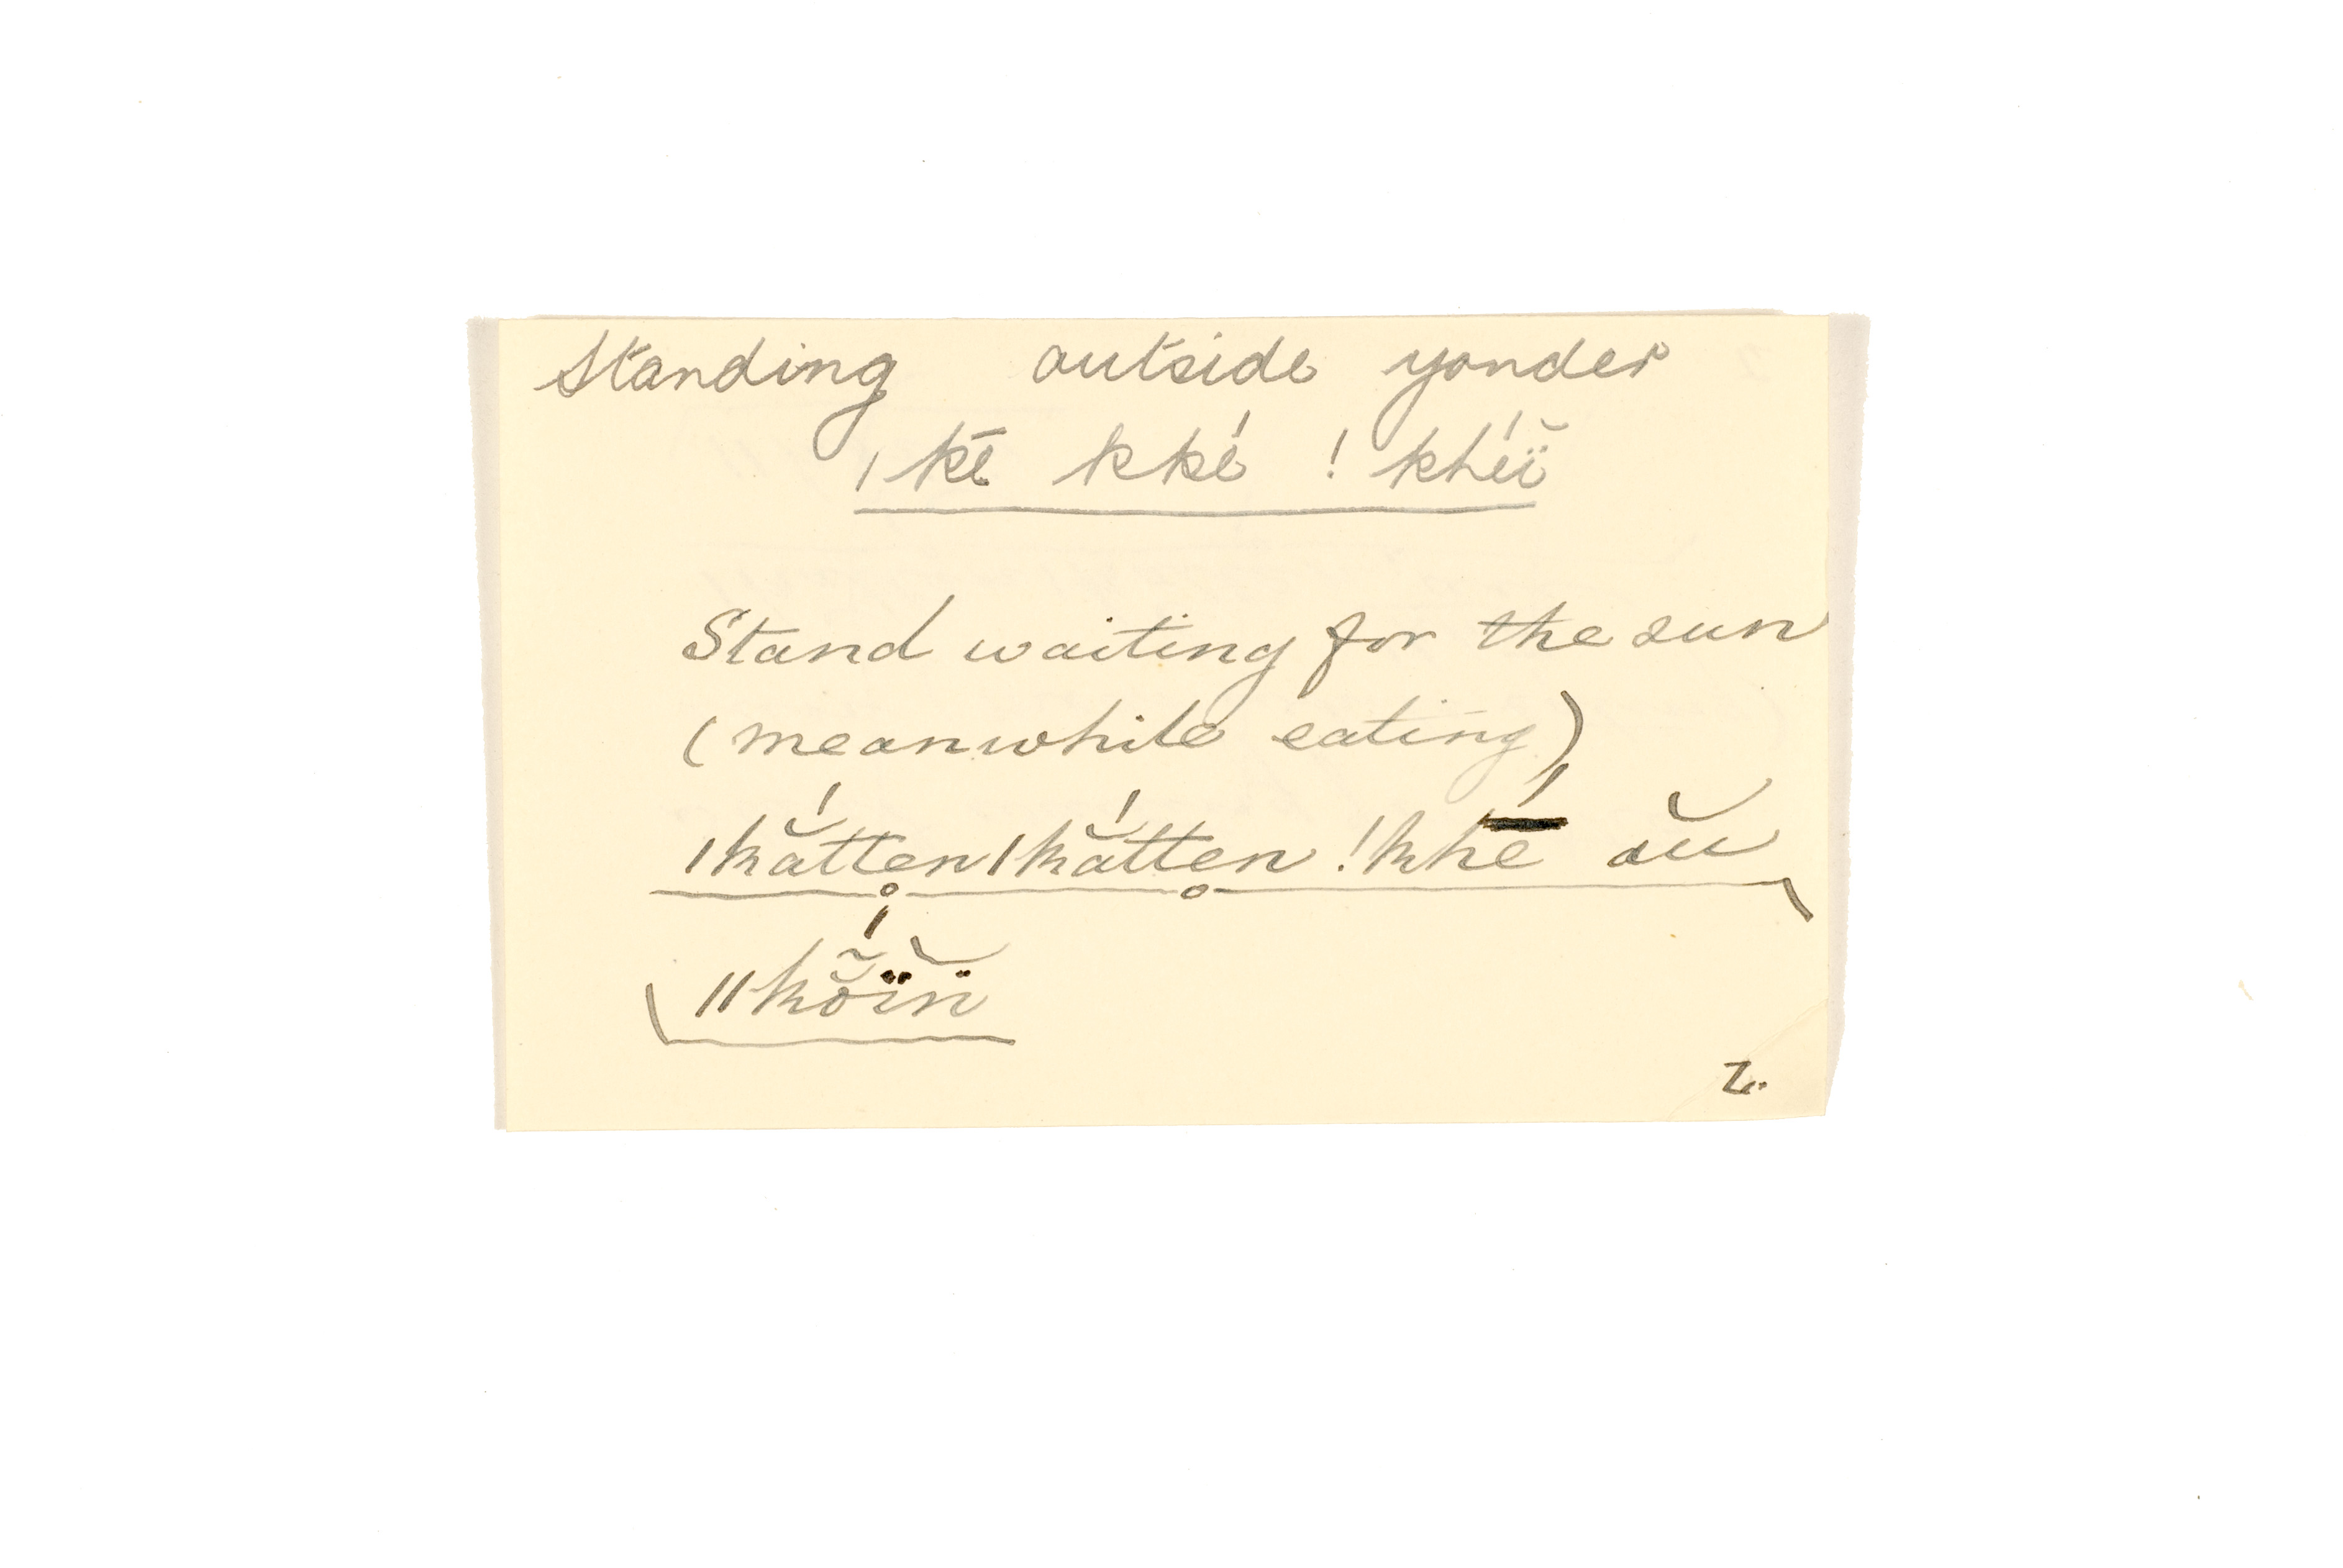 Standing outside yonder
ǀkē kké !khéĭ̈
Stand waiting for the sun
(meanwhile eating)
ǀkắtten̥ ǀkắtten̥ !khé̄ aŭ
ǁkŏ̃́ïn̆̈
L.